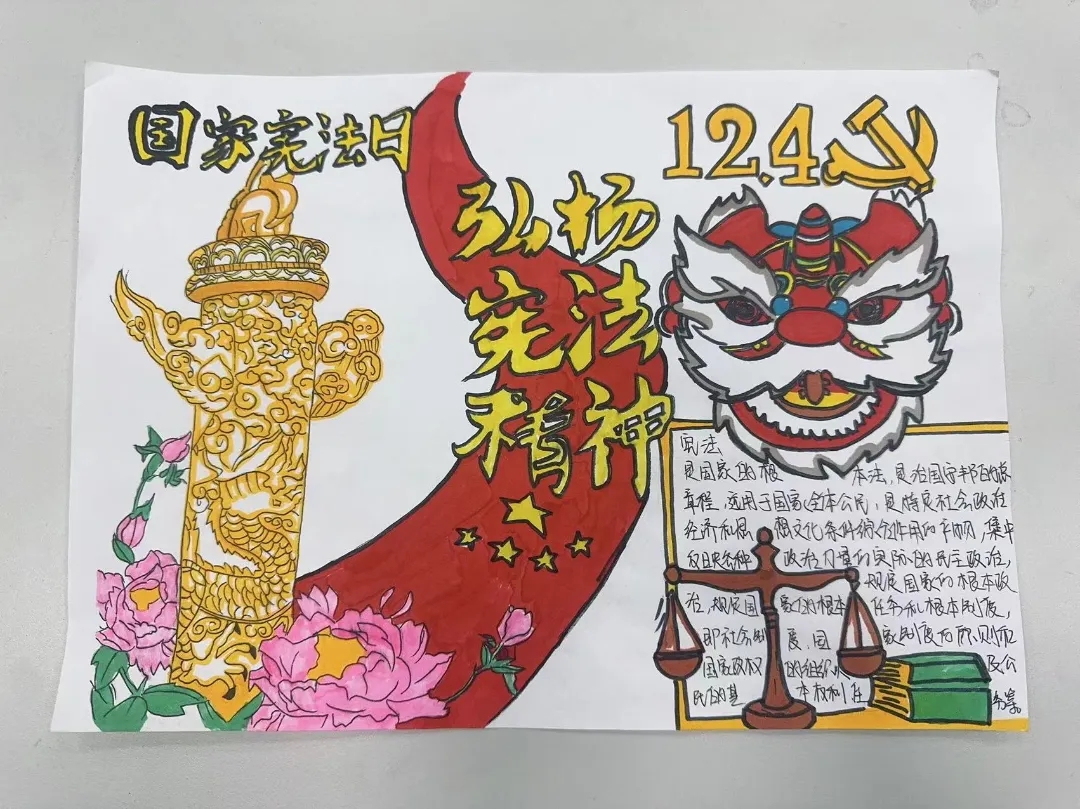 国家宪法日
12.4
弘扬
宪法
精神
宪法
是国家的根本法，是治国安邦的总
章程，适用于国家全体公民，是特定社会政治
经济和思想文化条件综合作用的产物，集中
反映各种政治力量的实际
的民主政治，
规定国家的根本政
治，规定国家的根本任务和根本制度，
即社会制度、国家制度
的原则和
国家政权的组织
及公
民的基本权利